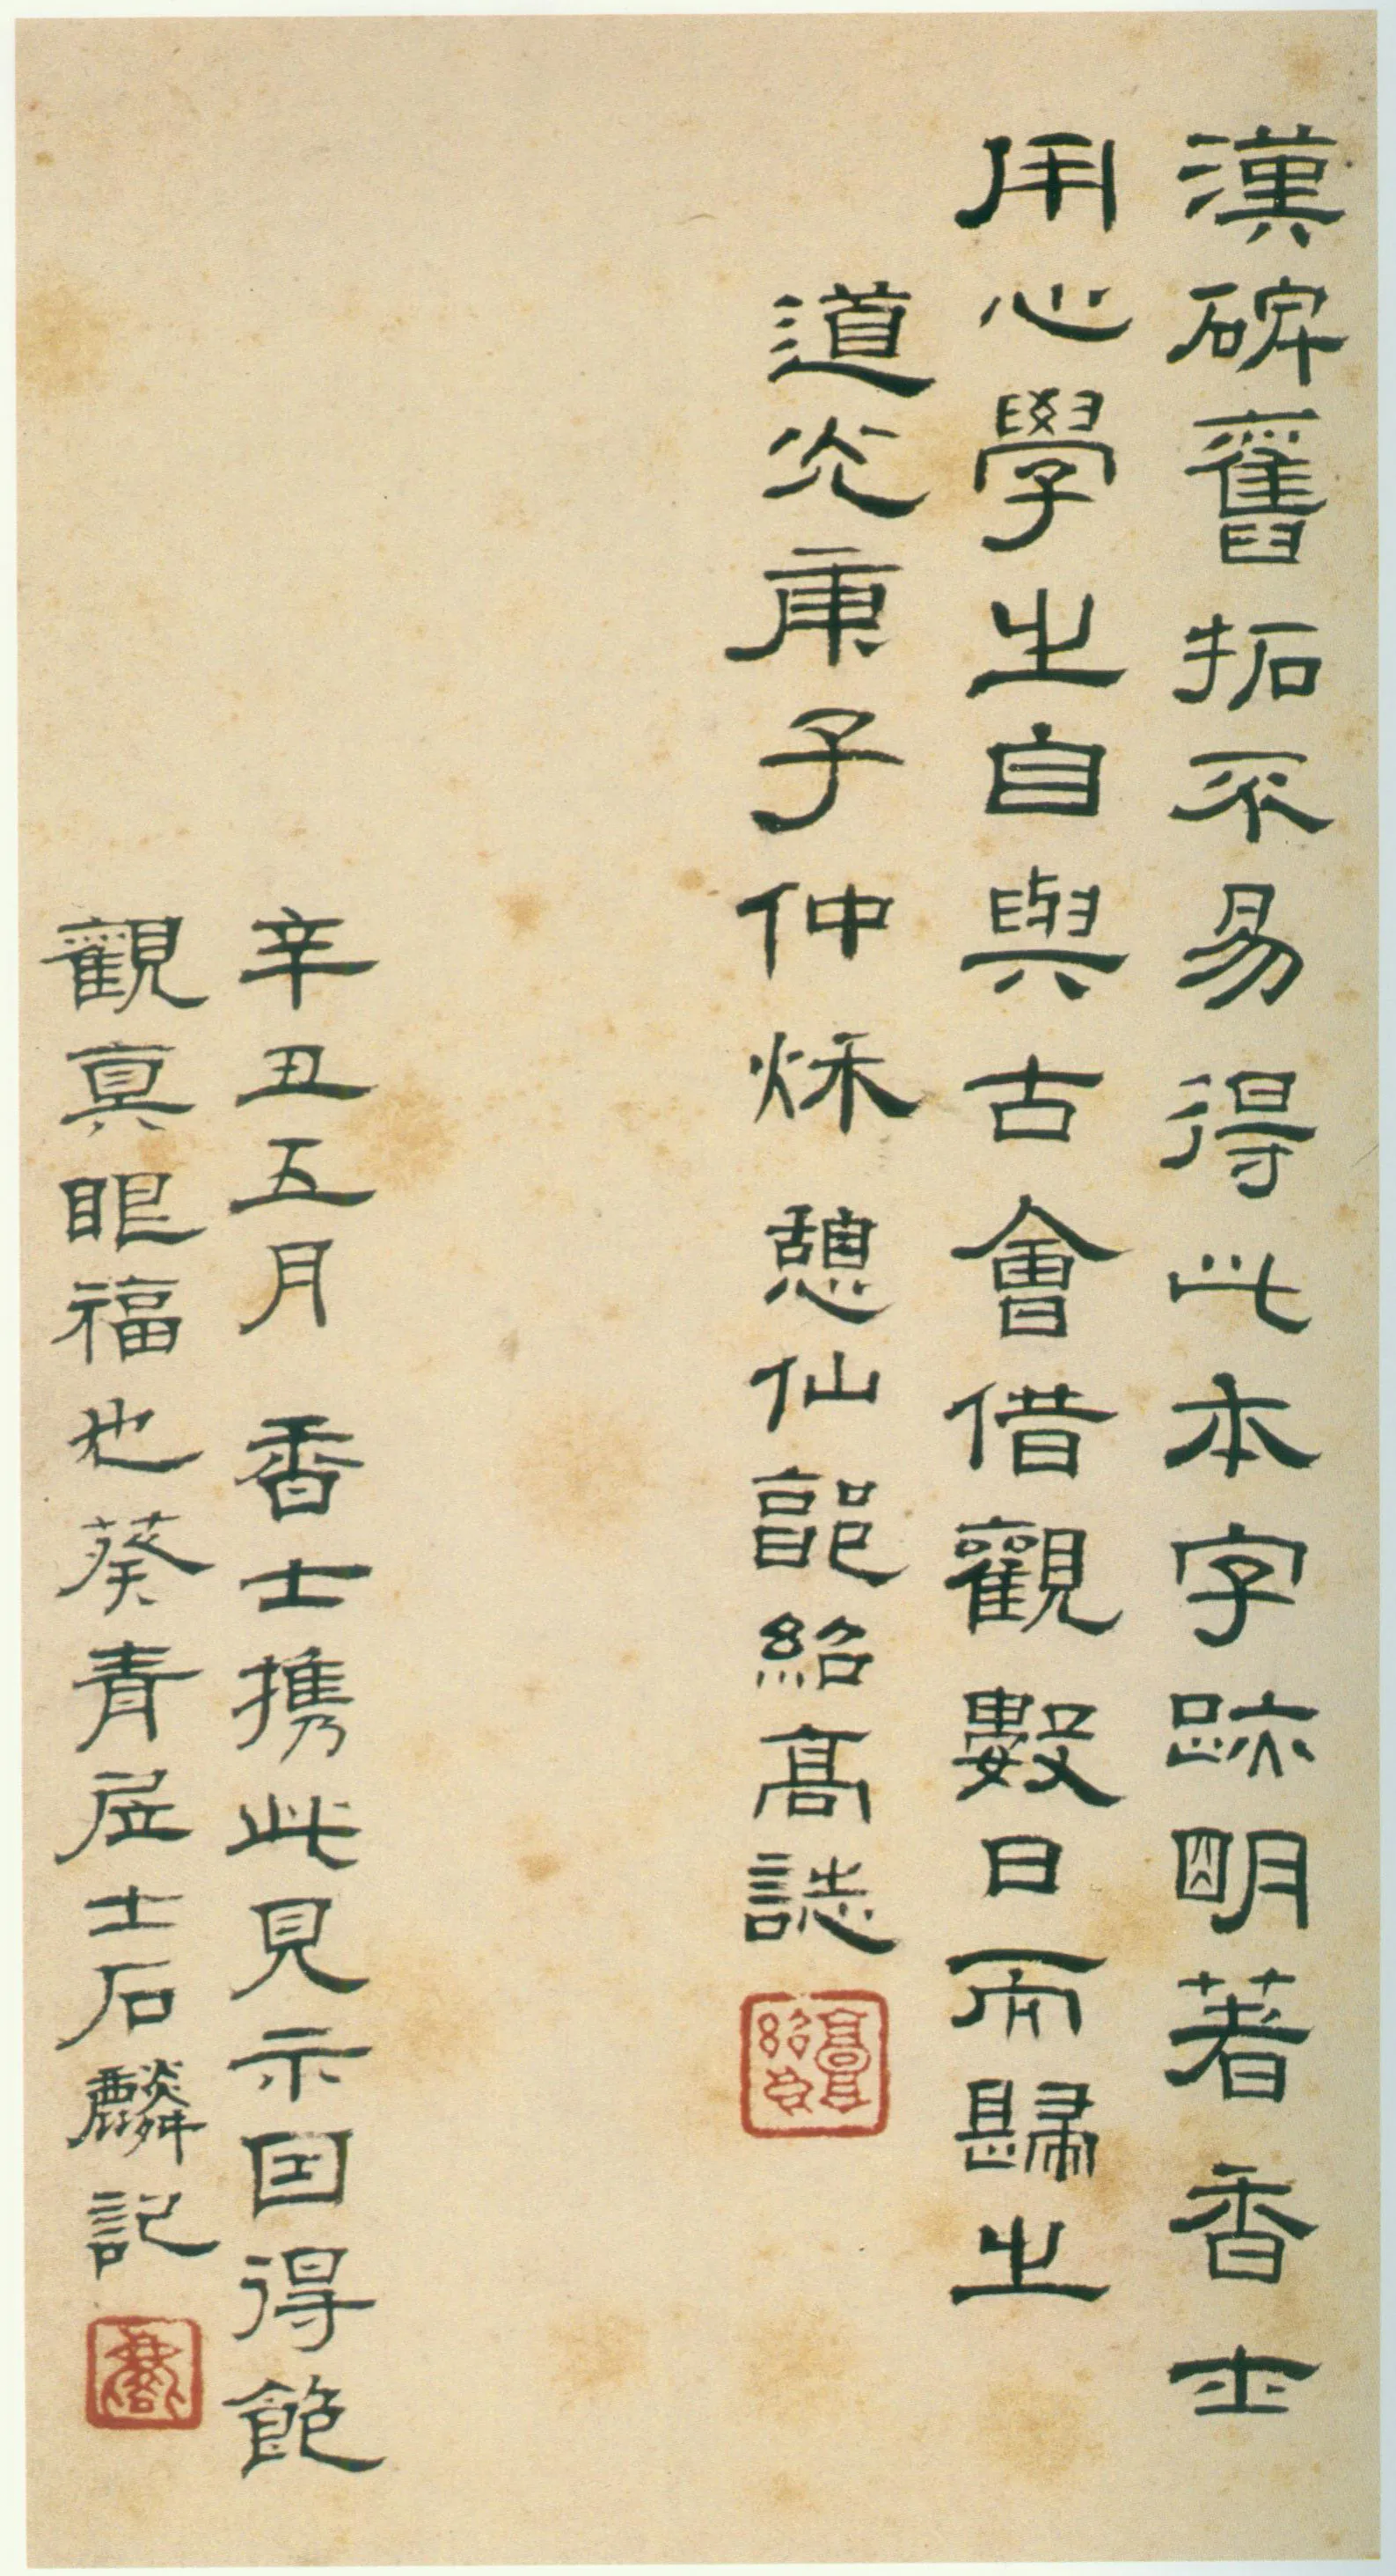 漢碑舊拓不易得此本字跡明著香士
用心學之自與古會借觀數日而歸之
道光庚子仲秌憩仙郭紹高誌
辛丑五月 香士攜此見示因得飽
觀真眼福也葵青居士石麟記